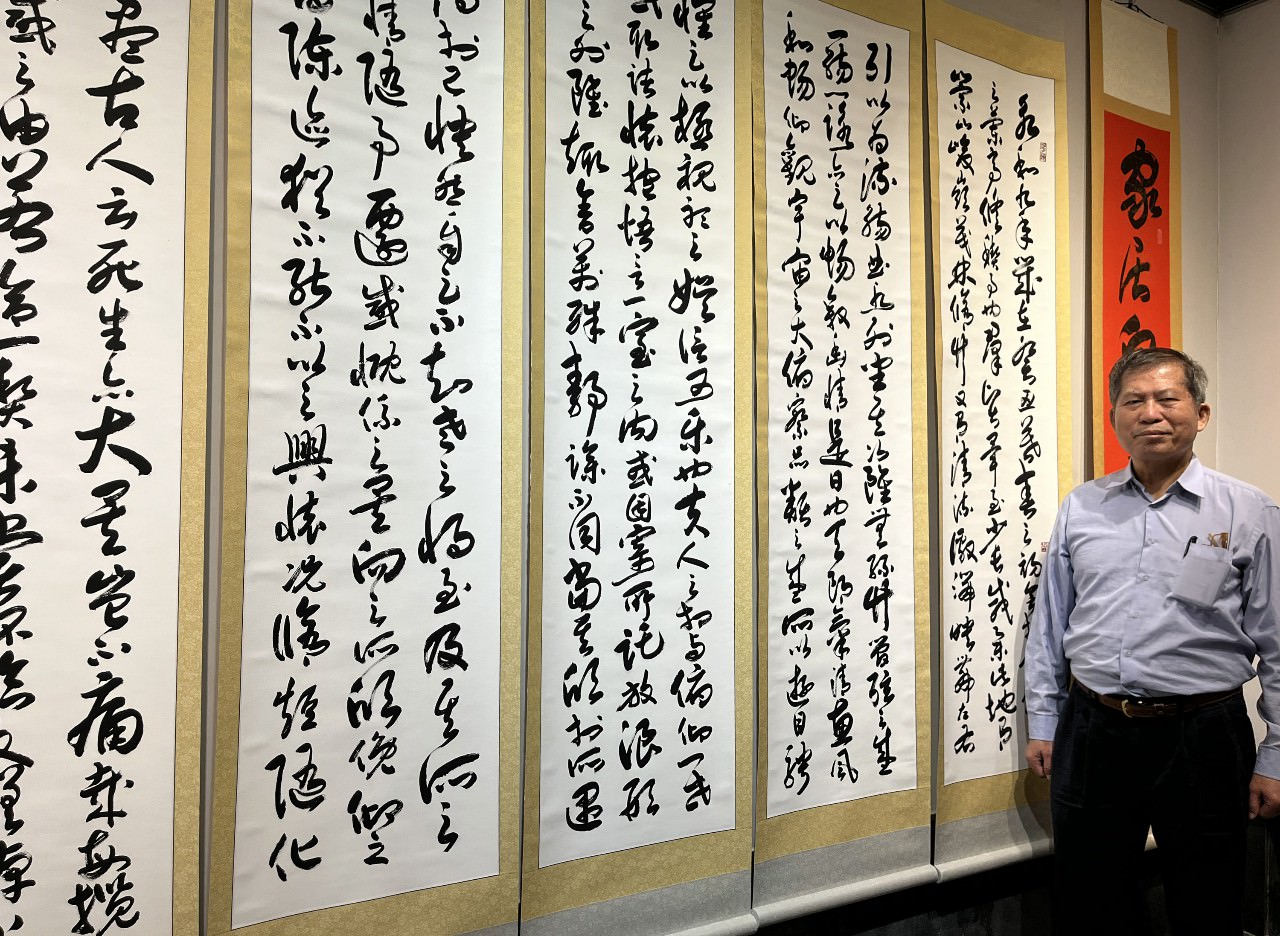 家
永和九年歲在癸丑暮春之初會
之蘭亭修禊事也群賢畢至少長咸集此地有
崇山峻嶺茂林修竹又有清流激湍映帶左右
引以為流觴曲水列坐其次雖無絲竹管弦之盛
一觴一詠亦足以暢敘幽情是日也天朗氣清惠風
和暢仰觀宇宙之大俯察品類之盛所以遊目騁
懷足以極視聽之娛信可樂也夫人之相與俯仰一世
或取諸懷抱悟言一室之內或因寄所託放浪形
之外雖趣舍萬殊靜躁不同當其欣於所遇
得於己快然自足不知老之將至及其所之
情隨事遷感慨係之矣向之所欣俛仰之
為陳迹猶不能不以之興懷況脩短隨化
盡古人云死生亦大矣豈不痛哉每攬
感之由若合一契未嘗不臨文嗟悼不